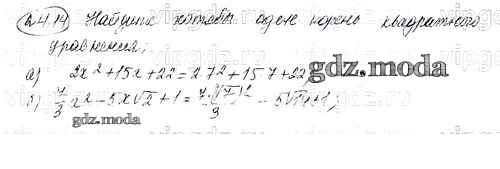 24.14 Найдите хотябы один корень квадратного
уравнения;
а) 2x² + 15x + 22 = 2·7² + 15·7 + 22;
gdz.moda
б) 7/3 x² - 5x√2 + 1 = 7·(√7)²/3 - 5√14 + 1;
gdz.moda